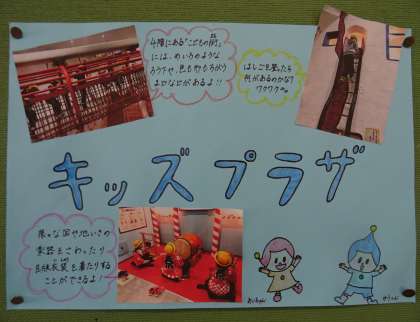 4階にある「こどもの街」
には、めいろのような
があるよ!!
はしごを登ったら
何があるのかな?
ワクワク
キッズプラザ
な国や地いきの
楽器をさわったり
民族衣装を着たりする
ことができるよ!